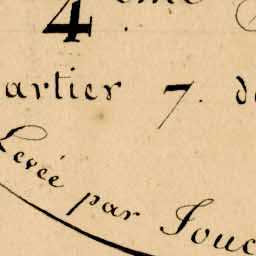 4
artier 7. d
Levée par Jouc